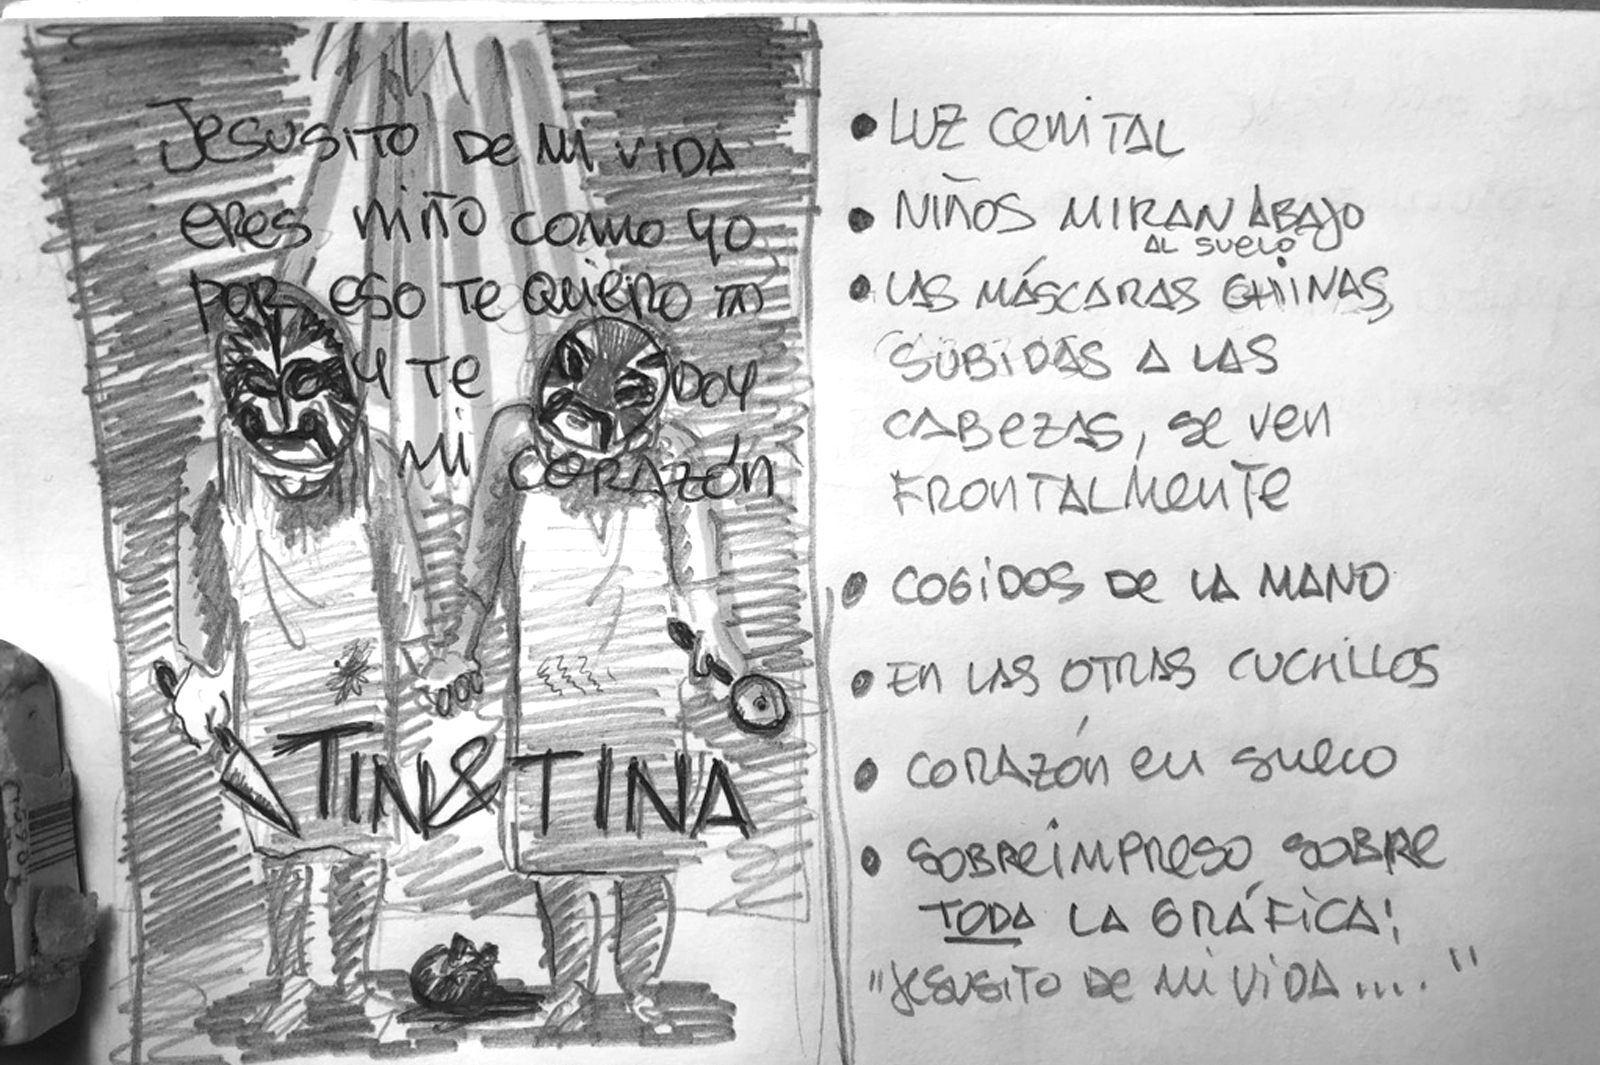 Jesusito de mi vida
eres niño como yo
por eso te quiero tanto
y te doy
mi corazón
TIN & TINA
• Luz cenital
• Niños miran abajo
al suelo
• Las máscaras chinas,
subidas a las
cabezas, se ven
frontalmente
• Cogidos de la mano
• En las otras cuchillos
• Corazón en suelo
• Sobreimpreso sobre
toda la gráfica:
"Jesusito de mi vida...."